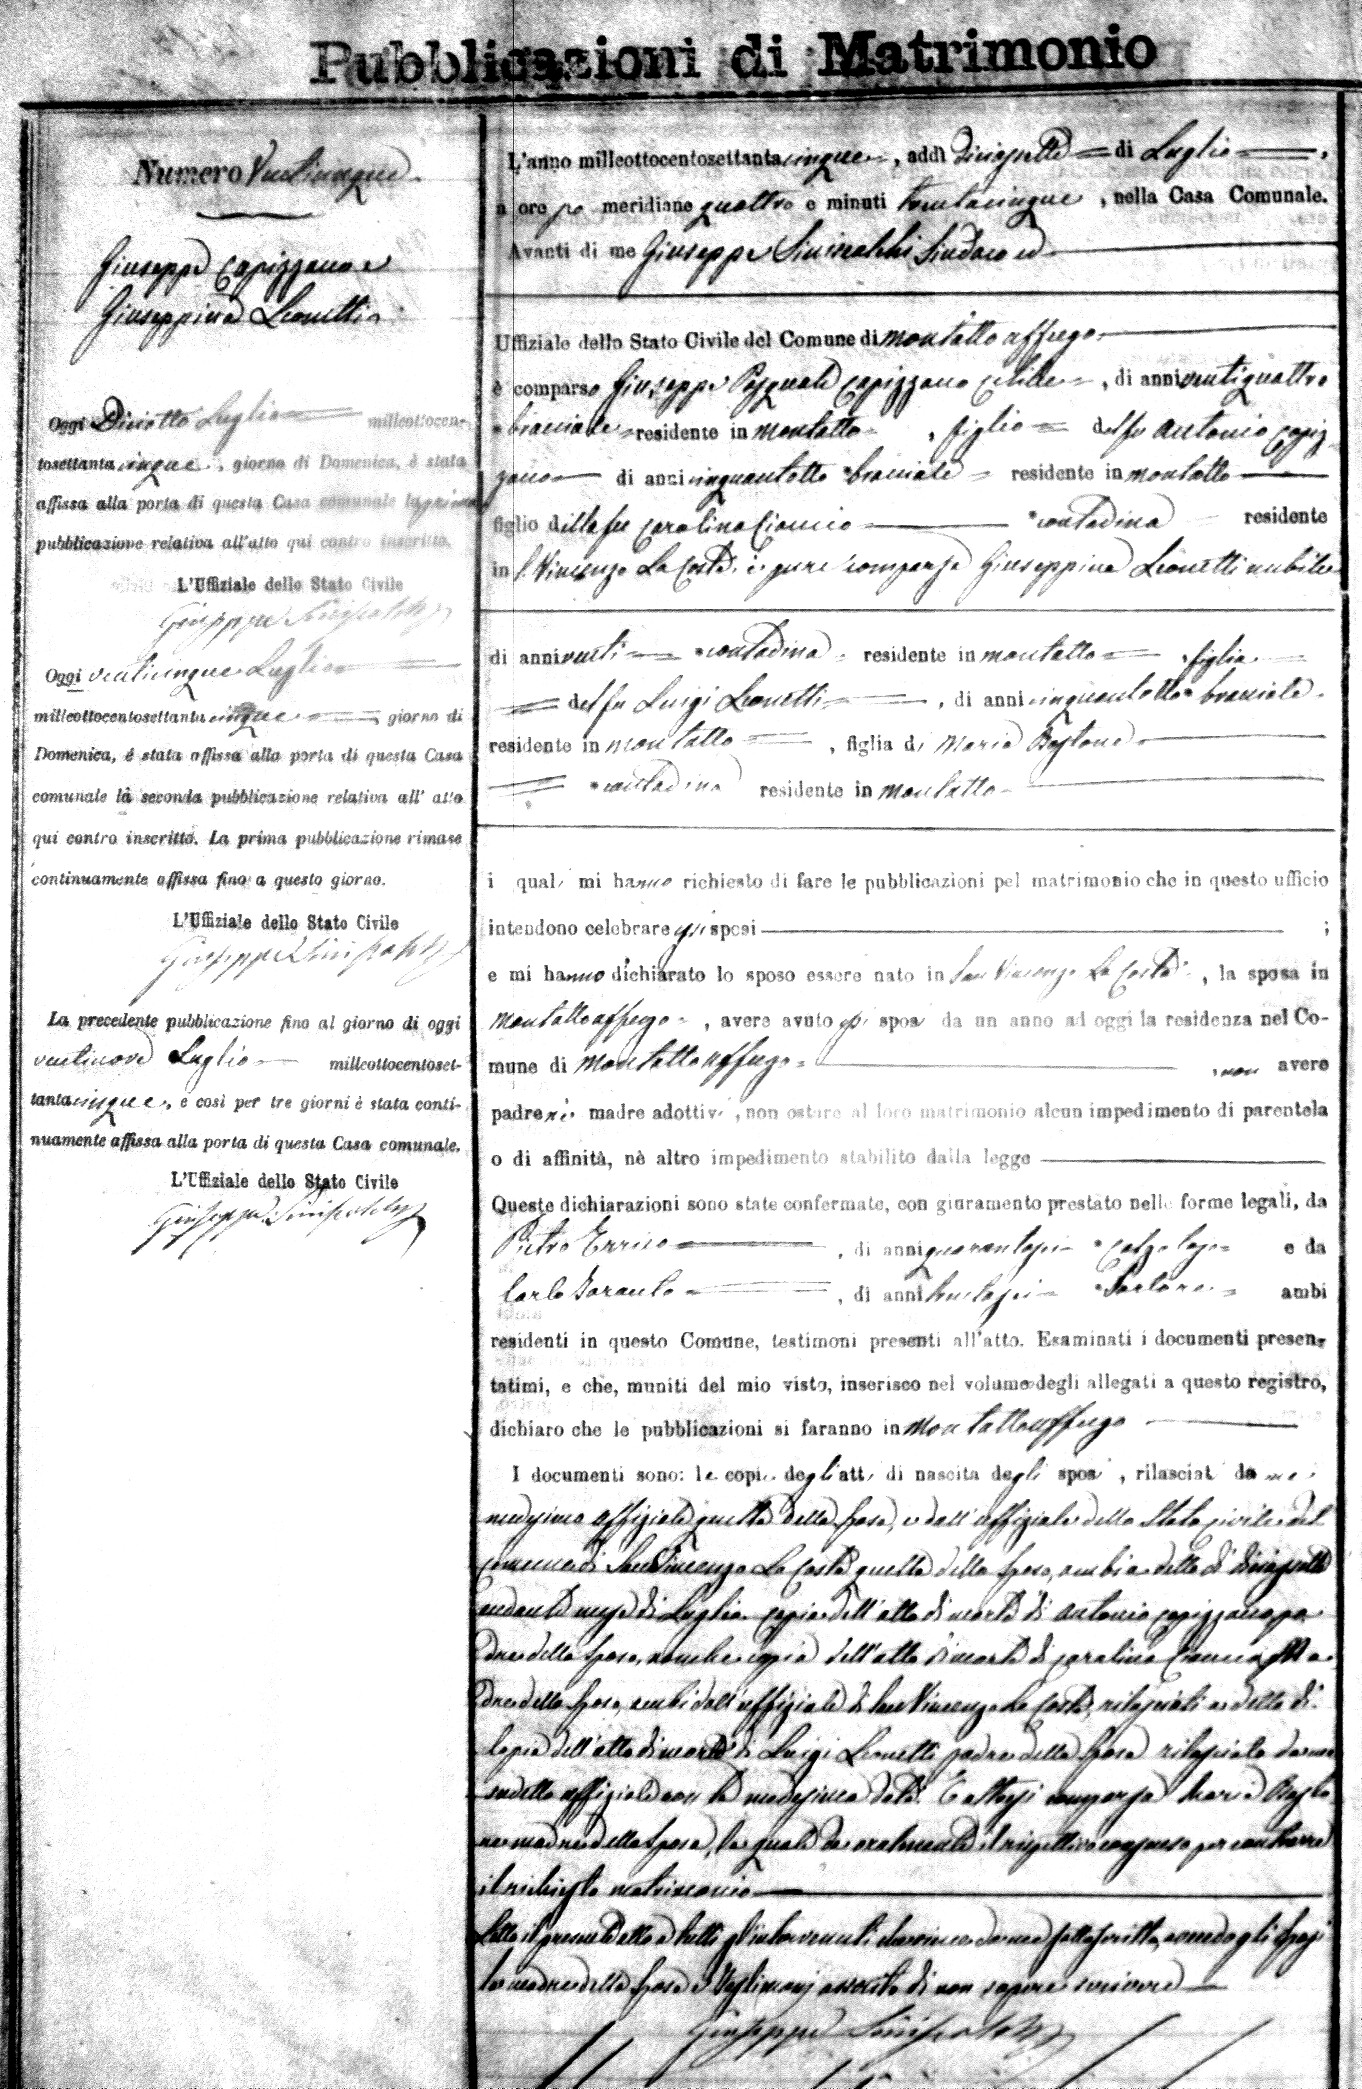 Pubblicazioni di Matrimonio
Numero Venticinque
Giuseppe Capizzano e
Giuseppina Leonetti
Oggi Diciotto Luglio millottocen-
tosettanta cinque, giorno di Domenica, è stata
affissa alla porta di questa Casa comunale la prima
pubblicazione relativa all'atto qui contro inscritto.
L'Uffiziale dello Stato Civile
Giuseppe
Oggi venticinque Luglio
millottocentosettanta cinque giorno di
Domenica, é stata affissa alla porta di questa Casa
comunale la seconda pubblicazione relativa all' atto
qui contro inscritto. La prima pubblicazione rimase
continuamente affissa fino a questo giorno.
L'Uffiziale dello Stato Civile
Giuseppe
La precedente pubblicazione fino al giorno di oggi
ventinove Luglio millecottocentoset-
tanta cinque, e così per tre giorni è stata conti-
nuamente affissa alla porta di questa Casa comunale.
L'Uffiziale dello Stato Civile
Giuseppe
L'anno milleottocentosettanta cinque, addì diciassette di Luglio,
a ore po meridiane quattro e minuti trentacinque, nella Casa Comunale.
Avanti di me Giuseppe Sindaco ed
Uffiziale dello Stato Civile del Comune di Montalto uffugo
è comparso Giuseppe Pasquale Capizzano celibe, di anni ventiquattro
bracciale residente in Montalto, figlio del fu Antonio Capiz
zano di anni cinquantotto bracciale residente in Montalto
figlio della fu Carolina Ciancio contadina residente
in S. Vincenzo La Costa, è pure comparsa Giuseppina Leonetti nubile
di anni venti contadina residente in Montalto figlia
del fu Luigi Leonetti, di anni cinquantotto bracciale
residente in Montalto, figlia di Maria Bastone
contadina residente in Montalto
i quali mi hanno richiesto di fare le pubblicazioni pel matrimonio che in questo ufficio
intendono celebrare essi sposi;
e mi hanno dichiarato lo sposo essere nato in San Vincenzo La Costa, la sposa in
Montalto uffugo, avere avuto essi sposi da un anno ad oggi la residenza nel Co-
mune di Montalto uffugo, non avere
padre nè madre adottivi, non ostare al loro matrimonio alcun impedimento di parentela
o di affinità, nè altro impedimento stabilito dalla legge
Queste dichiarazioni sono state confermate, con giuramento prestato nelle forme legali, da
Pietro Errico, di anni quarantasei calzolajo e da
Carlo, di anni trentasei Sartore ambi
residenti in questo Comune, testimoni presenti all'atto. Esaminati i documenti presen-
tatimi, e che, muniti del mio visto, inserisco nel volume degli allegati a questo registro,
dichiaro che le pubblicazioni si faranno in Montalto uffugo
I documenti sono: le copie degli atti di nascita degli sposi, rilasciati da me
medesimo uffiziale quella della sposa, e dall'uffiziale dello Stato civile del
comune di San Vincenzo La Costa quella dello sposo, ambi a detto dì diciassette
andante mese di Luglio. copia dell'atto di morte di Antonio Capizzano pa
dre dello sposo, nonche copia dell'atto di morte di Carolina Ciancio Ma
dre dello sposo, ambi dall'uffiziale di San Vincenzo La Costa, rilasciati a detto dì.
Copia dell'atto di morte di Luigi Leonetti padre della sposa rilasciata da me
sudetto uffiziale con la medesima data. E altresì comparsa Maria Basto
ne madre della sposa, la quale da oralmente il rispettivo consenso per contrarre
il richiesto matrimonio
Letto il presente atto a tutti gl'intervenuti da me sottoscritto, avendo gli sposi
la madre della sposa e testimonj asserito di non sapere scrivere
Giuseppe